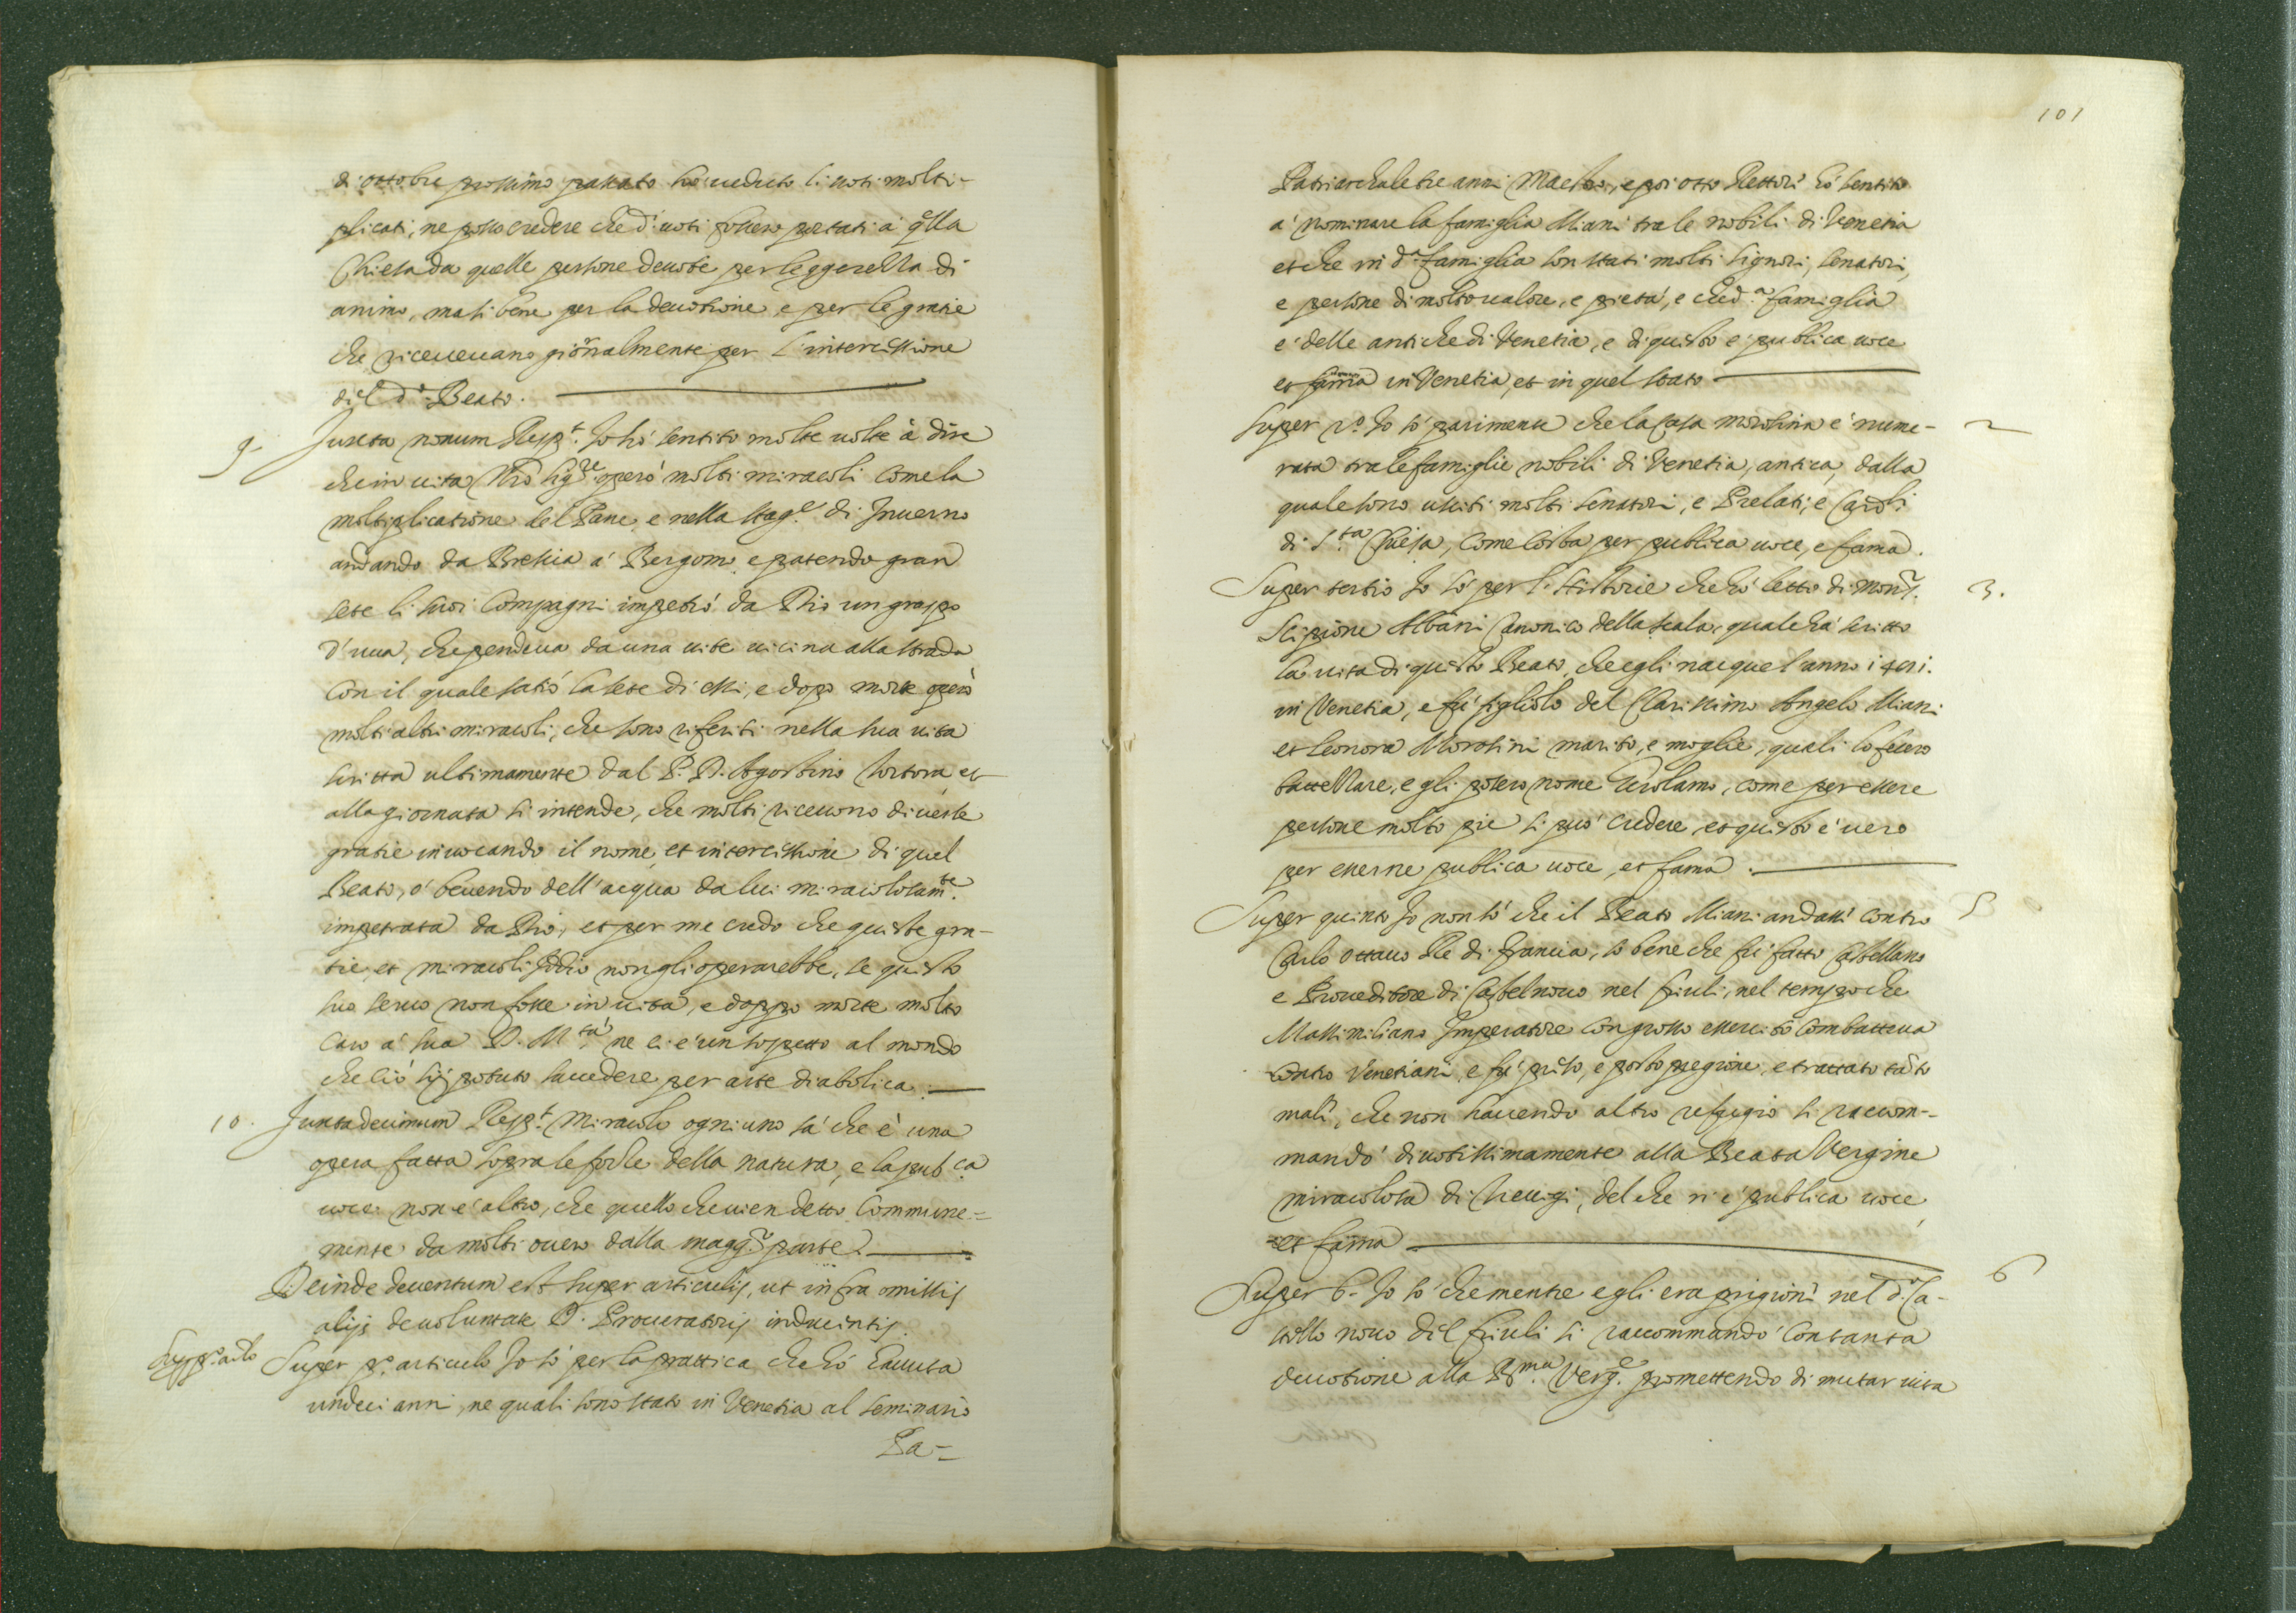 di ottobre prossimo passato hò ueduto li uoti molti-
plicati, ne posso credere che d.i uoti fossero portati à q̃lla
Chiesa da quelle persone deuote per leggerezza di
animo, ma si bene per la deuotione, e per le gratie
che riceueuano giornalmente per l'intercessione
del d.o Beato.
9. Juxta nonum Resp.t Io hò sentito molte uolte à dire
che in uita Nr̃o Sig.re operò molti miracoli come la
moltiplicatione del Pane, e nella stag.e di Inuerno
andando da Brescia à Bergomo, e patendo gran
sete li suoi Compagni impetrò da Dio un grappo
d'uua, che pendeua da una uite uicina alla strada
con il quale satiò la sete di essi, e dopo morte operò
molti altri miracoli, che sono riferiti nella sua uita
scritta ultimamente dal P. D. Agostino Tortora, et
alla giornata si intende, che molti riceuono diuerse
gratie inuocando il nome, et intercessione di quel
Beato, ò beuendo dell'acqua da lui miracolosam.te
impetrata da Dio, et per me credo che queste gra-
tie, et miracoli Iddio non gli operarebbe, se questo
suo seruo non fosse in uita, e doppo morte molto
caro à sua D. M.tà ne ci è un sospetto al mondo
che ciò sij potuto succedere per arte diabolica.
10. Juxta decimum Resp.t Miracolo ogni uno sà che è una
opera fatta sopra le forze della natura, e la pub.ca
uoce non è altro, che quello che uien detto Commune-
mente da molti ouero dalla magg.r parte.
Deinde deuentum est super articulis, ut infra omissis
alijs de uoluntate D. Procuratoris inducentis.
Sup. p.o ar.lo Super p.o articulo Io sò per la prattica che hò hauuta
undeci anni, ne quali sono stato in Venetia al seminario
Pa-
101
Patriarchale tre anni Maestro, e poi otto Rettore hò sentito
à nominare la famiglia Miani tra le nobili di Venetia
et che in d.a famiglia son stati molti Signori, Senatori,
e persone di molto ualore, e pietà, e che d.a famiglia
è delle antiche di Venetia, e di questo è publica uoce
et fama in Venetia, et in quel stato
Super 2.o Io sò parimente che la Casa Morosina è nume- 2
rata tra le famiglie nobili di Venetia, antica, dalla
quale sono usciti molti Senatori, e Prelati, e Card.li
di S.ta Chiesa, come consta per publica uoce, e fama.
Super tertio Io sò per l'Historie che hò letto di Mons.r 3.
Scipione Albani Canonico della Scala, quale hà scritto
la uita di questo Beato, che egli nacque l'anno 1481.
in Venetia, e fù figliolo del Clarissimo Angelo Miani
et Leonora Morosini marito, e moglie, quali lo fecero
battezzare, e gli posero nome Girolamo, come per essere
persone molto pie si può credere, et questo è uero
per esserne publica uoce, et fama.
Super quinto Io non sò che il Beato Miani andasse contro 5
Carlo ottauo Rè di Francia, sò bene che fù fatto Castellano
e Proueditore di Castelnouo nel Friuli, nel tempo che
Massimiliano Imperatore con grosso essercito combatteua
contro Venetiani, e fù preso, e posto pregione, e trattato tãto
male, che non hauendo altro refugio si raccom-
mandò diuotissimamente alla Beata Vergine
miracolosa di Treuigi, del che ni è publica uoce
et fama
Super 6.o Io sò che mentre egli era prigione nel d.o Ca- 6
stello nouo del Friuli si raccommandò con tanta
deuotione alla B.ma Verg.e promettendo di mutar uita